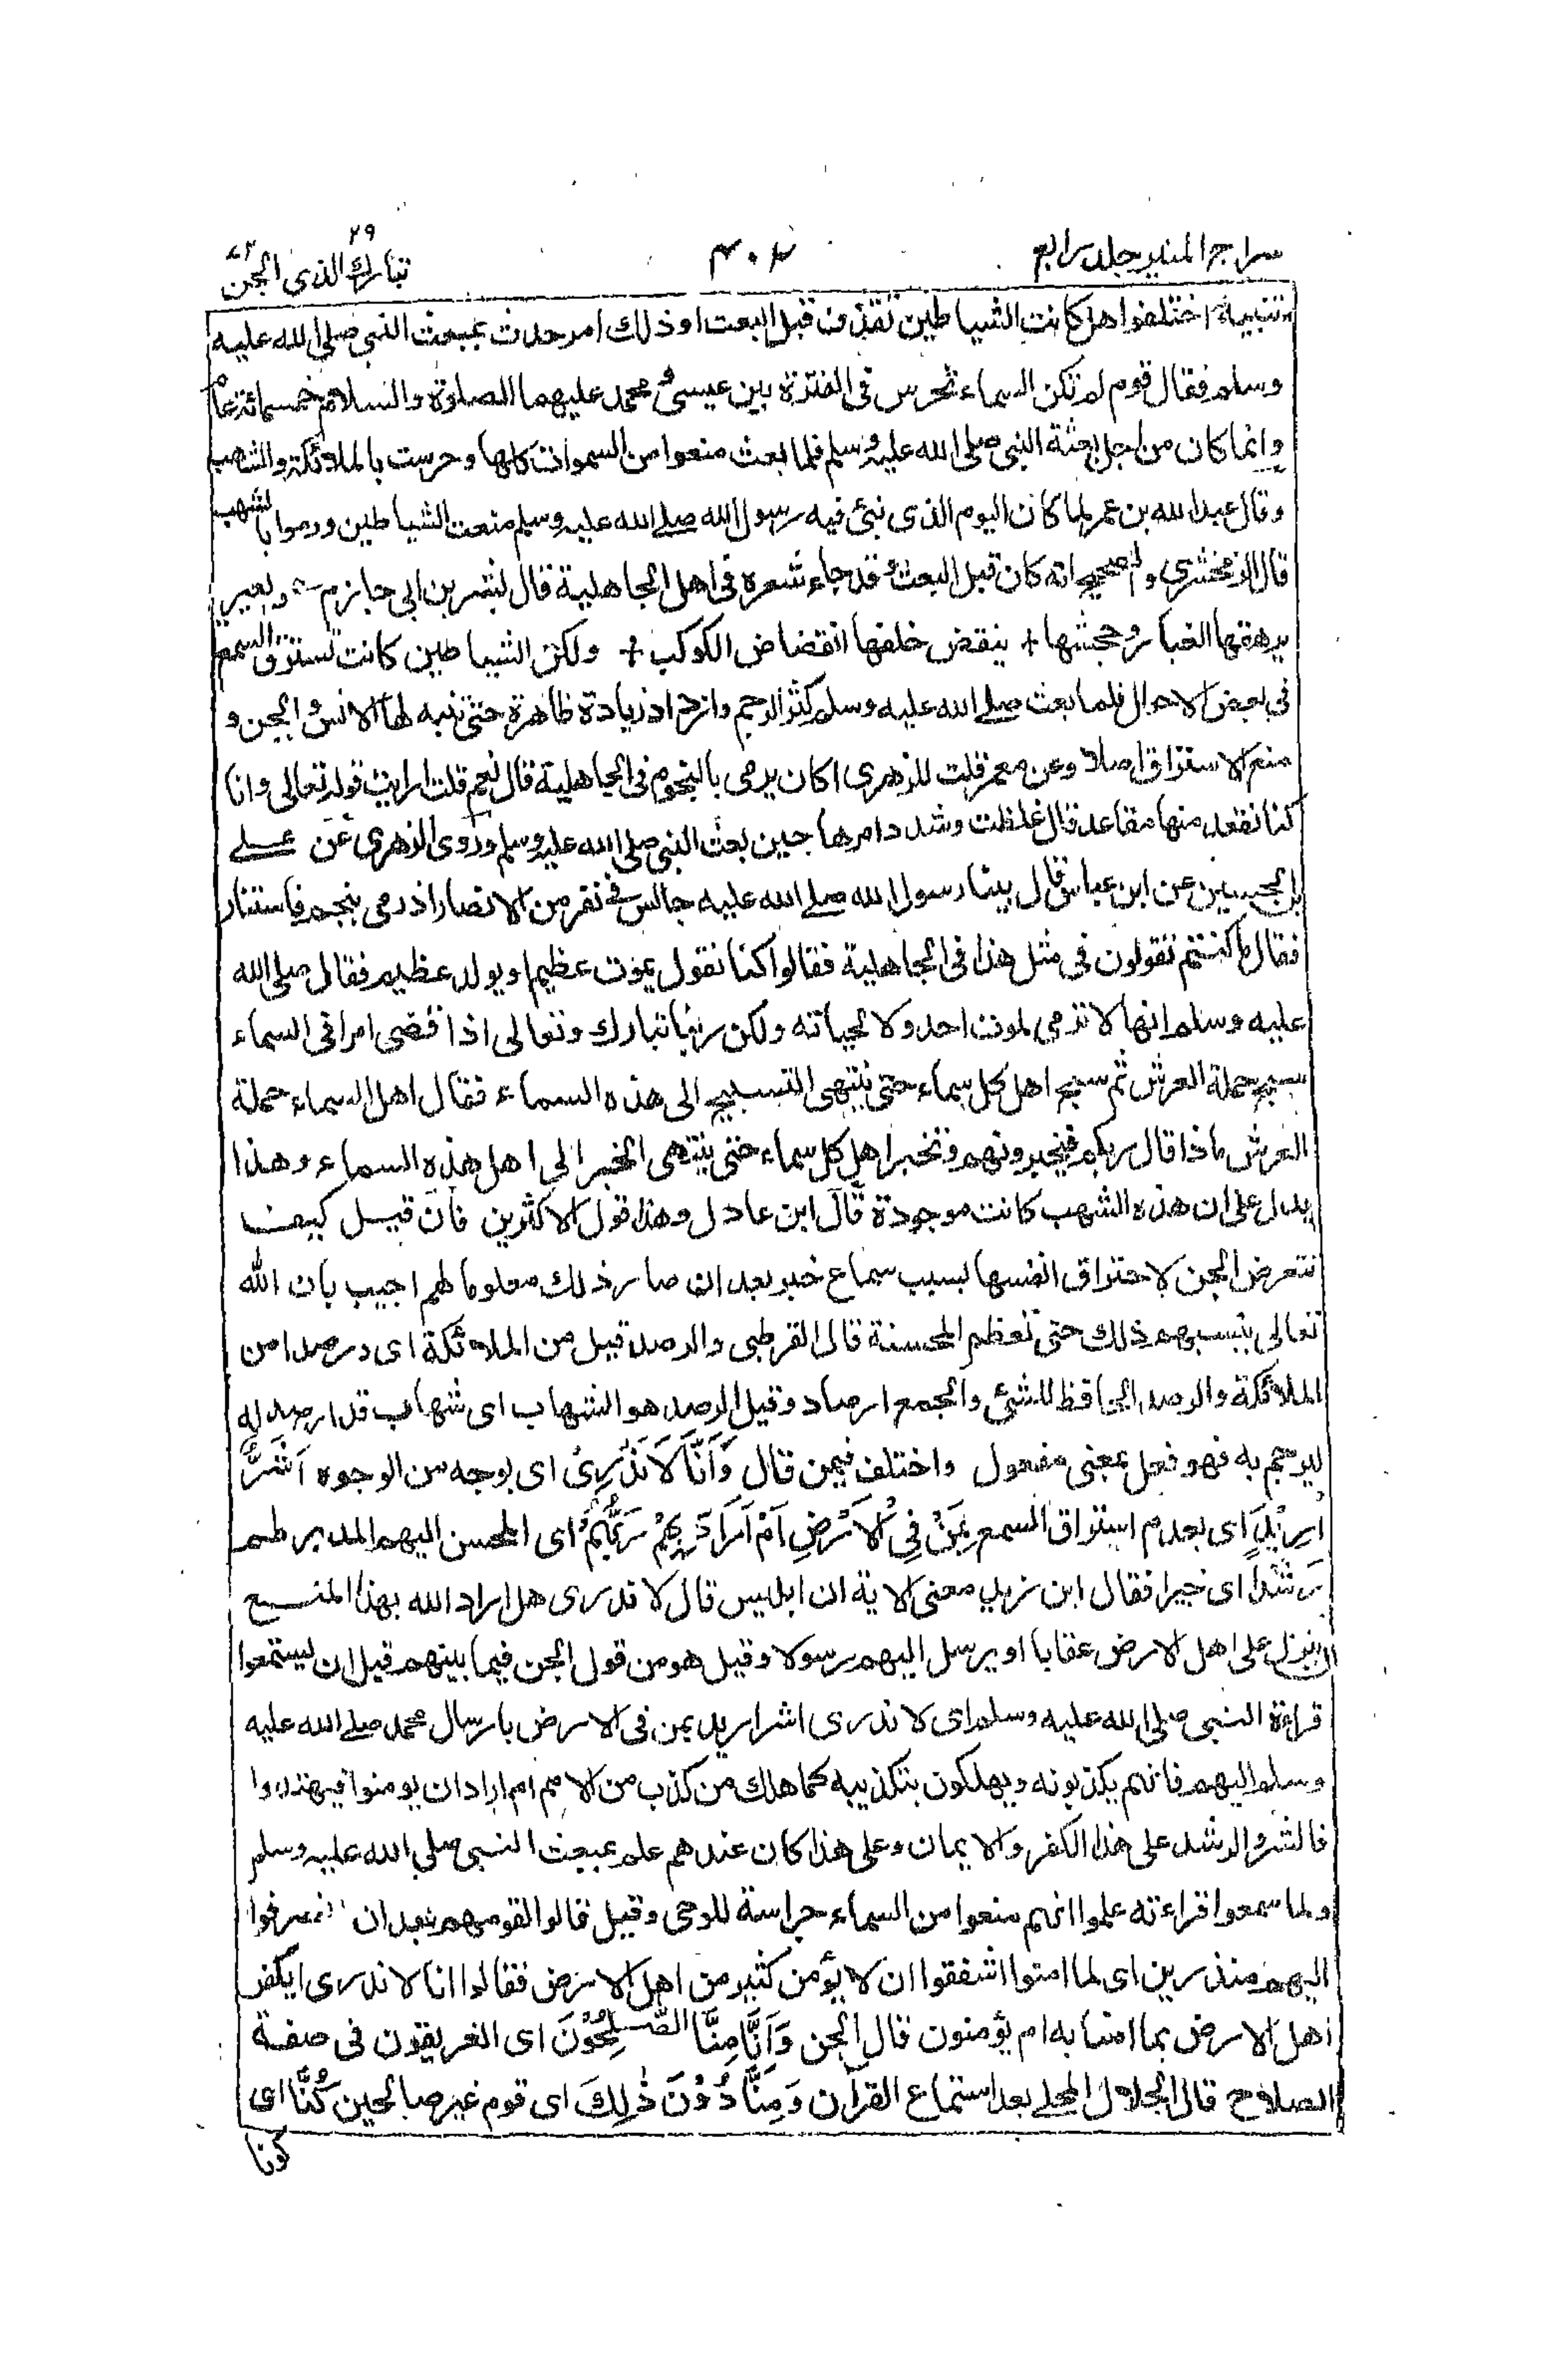 سراج المنير جلد رابع
٤٠٢
تبارك الذى ٢٩ الجن ٧٢
تنبيه اختلفوا هل كانت الشياطين تقذف قبل البعث او ذلك امر حدث بمبعث النبي صلى الله عليه
وسلم فقال قوم لم تكن السماء تحرس فى الفترة بين عيسى ومحمد عليهما الصلوة والسلام خمسمائة عام
وانما كان من اجل بعثة النبي صلى الله عليه وسلم فلما بعث منعوا من السموات كلها وحرست بالملائكة والشهب
وقال عبد الله بن عمر لما كان اليوم الذى نبئ فيه رسول الله صلے الله عليه وسلم منعت الشياطين ورموا بالشهب
قال الزمخشرى والصحيح انه كان قبل البعث وقد جاء شعره فى اهل الجاهلية قال بشر بن ابى حازم والعير
يرهقها الغبار وجحشها + ينقض خلفها انقضاض الكوكب + ولكن الشياطين كانت تسترق السمع
فى بعض الاحوال فلما بعث صلے الله عليه وسلم كثر الرجم وازداد زيادة ظاهرة حتى تنبه لها الانس والجن و
منع الاستراق اصلا وعن معمر قلت للزهرى اكان يرمى بالنجوم فى الجاهلية قال نعم قلت ارايت قوله تعالى وانا
كنا نقعد منها مقاعد قال غلظت وشدد امرها حين بعث النبي صلى الله عليه وسلم وروى الزهرى عن علے
بن الحسين عن ابن عباس قال بينا رسول الله صلے الله عليه جالس فى نفر من الانصار اذ رمى بنجم فاستنار
فقال ما كنتم تقولون فى مثل هذا فى الجاهلية فقالوا كنا نقول يموت عظيم او يولد عظيم فقال صلى الله
عليه وسلم انها لا ترمى لموت احد ولا لحياته ولكن ربنا تبارك وتعالى اذا قضى امرا فى السماء
سبح حملة العرش ثم سبح اهل كل سماء حتى ينتهى التسبيح الى هذه السماء فقال اهل السماء حملة
العرش ماذا قال ربكم فيخبرونهم وتخبر اهل كل سماء حتى ينتهى الخبر الى اهل هذه السماء وهذا
يدل على ان هذه الشهب كانت موجودة قال ابن عادل وهذا قول الاكثرين فان قيل كيف
تتعرض الجن لاحتراق انفسها بسبب سماع خبر بعد ان صار ذلك معلوما لهم اجيب بان الله
تعالى ينسيهم ذلك حتى تعظم المحسنة قال القرطبى والرصد قيل من الملائكة اى ورصدا من
الملائكة والرصد الحافظ للشئ والجمع ارصاد وقيل الرصد هو الشهاب اى شهاب قد ارصد له
ليرجم به فهو فعل بمعنى مفعول واختلف فيمن قال وَاَنَّا لَا نَدْرِىْ اى بوجه من الوجوه اَشَرٌّ
اُرِيْدَ اى بعدم استراق السمع بِمَنْ فِى الْاَرْضِ اَمْ اَرَادَ بِهِمْ رَبُّهُمْ اى المحسن اليهم المدبر لهم
رَشَدًا اى خيرا فقال ابن زيد معنى الاية ان ابليس قال لا ندرى هل اراد الله بهذا المنع
ان ينزل على اهل الارض عقابا او يرسل اليهم رسولا وقيل هو من قول الجن فيما بينهم قبل ان يستمعوا
قراءة النبى صلى الله عليه وسلم اى لا ندرى اشر اريد بمن فى الارض بارسال محمد صلے الله عليه
وسلم اليهم فانهم يكذبونه ويهلكون بتكذيبه كما هلك من كذب من الامم ام اراد ان يومنوا فيهتدوا
فالشر والرشد على هذا الكفر والايمان وعلى هذا كان عندهم علم بمبعث النبى صلى الله عليه وسلم
ولما سمعوا قراءته علموا انهم منعوا من السماء حراسة للوحى وقيل قالوا لقومهم بعد ان انصرفوا
اليهم منذرين اى لما امنوا اشفقوا ان لا يؤمن كثير من اهل الارض فقالوا انا لا ندرى ايكفر
اهل الارض بما امنا به ام يؤمنون قال الجن وَاَنَّا مِنَّا الصّٰلِحُوْنَ اى الغريقون فى صفة
الصلاح قال الجلال المحلے بعد استماع القرآن وَمِنَّا دُوْنَ ذٰلِكَ اى قوم غير صالحين كُنَّا اى
كونا